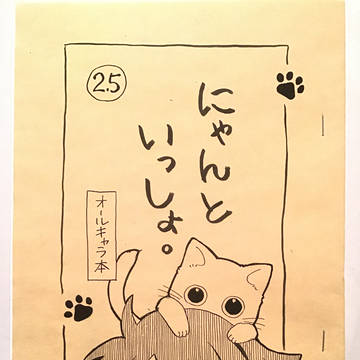 25
にゃんと
いっしょ。
オールキャラ本